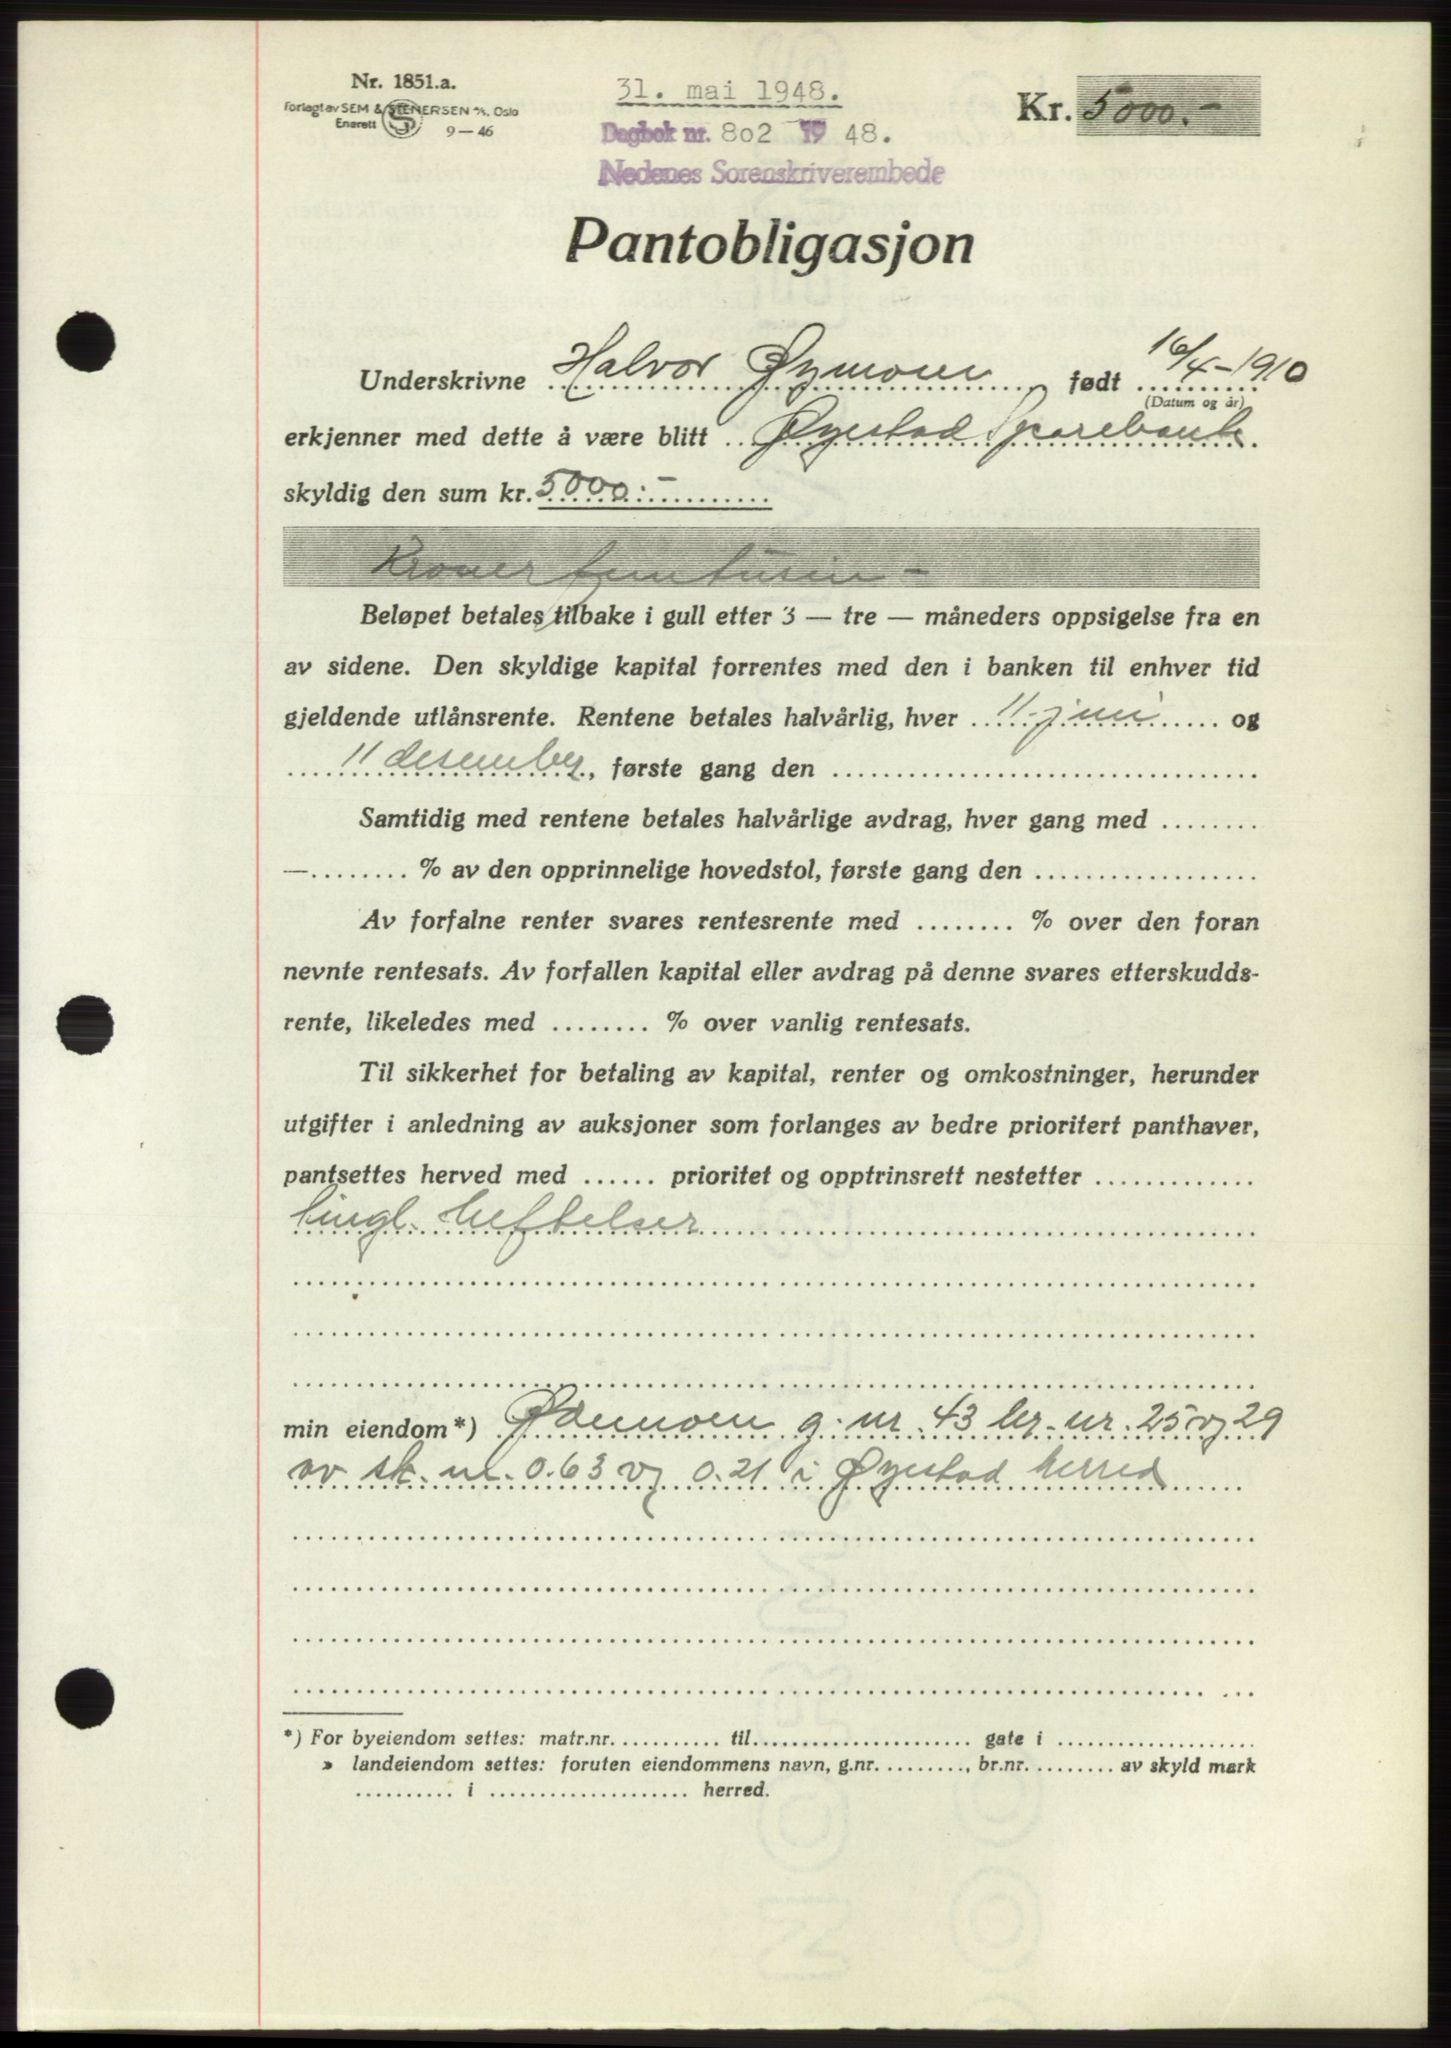 Nr. 1851.a.
Forlagt av SEM & STENERSEN A/S, Oslo
Enerett
9 — 46
31. mai 1948.
Dagbok nr. 802 19 48.
Nedenes Sorenskriverembede
Kr. 5000.-
Pantobligasjon
Underskrivne Halvor Øymoen, født 16/4-1910
(Datum og år)
erkjenner med dette å være blitt Øyestad Sparebank
skyldig den sum kr. 5000:-
Kroner femtusen -
Beløpet betales tilbake i gull etter 3 — tre — måneders oppsigelse fra en
av sidene. Den skyldige kapital forrentes med den i banken til enhver tid
gjeldende utlånsrente. Rentene betales halvårlig, hver 11. juni og
11 desember, første gang den
Samtidig med rentene betales halvårlige avdrag, hver gang med
—........ % av den opprinnelige hovedstol, første gang den
Av forfalne renter svares rentesrente med ........ % over den foran
nevnte rentesats. Av forfallen kapital eller avdrag på denne svares etterskudds-
rente, likeledes med ........ % over vanlig rentesats.
Til sikkerhet for betaling av kapital, renter og omkostninger, herunder
utgifter i anledning av auksjoner som forlanges av bedre prioritert panthaver,
pantsettes herved med ...... prioritet og opptrinsrett nestetter
tingl. heftelser
min eiendom*) g. nr. 43 br. nr. 25 og 29
av sk. m. 0.63 og 0.21 i Øyestad herred
*) For byeiendom settes: matr.nr. ........... til ...................... gate i ....................
» landeiendom settes: foruten eiendommens navn, g.nr. ........., br.nr. ......... av skyld mark
.......... i .................... herred.